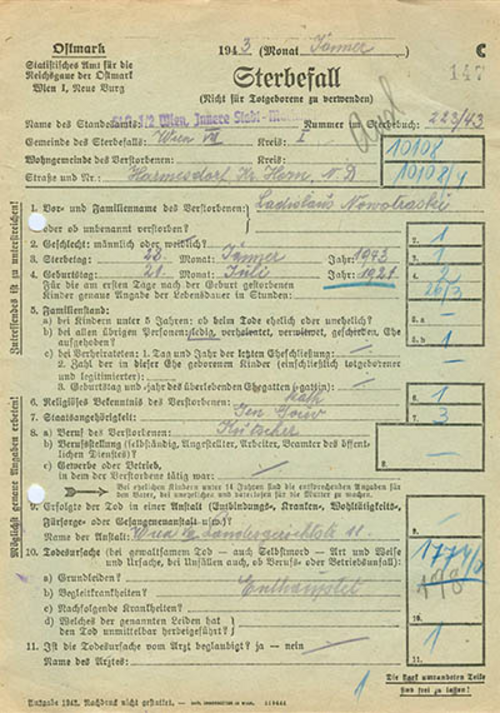 Ostmark
Statistisches Amt für die
Reichsgaue der Ostmark
Wien I, Neue Burg
1943 (Monat Jänner)
C
147
Sterbefall
(Nicht für Totgeborene zu verwenden)
Name des Standesamts: Wien, Innere Stadt Nummer im Sterbebuch: 223/43
Gemeinde des Sterbefalls: Wien VIII Kreis: I
10108
Wohngemeinde des Verstorbenen: Kreis:
Straße und Nr.: Harmesdorf, Kr. Horn, N. D
10108/4
1. Vor- und Familienname des Verstorbenen: Ladislaus Nowotraski
oder ob unbenannt verstorben?
2. Geschlecht: männlich oder weiblich?
1
3. Sterbetag: 22. Monat: Jänner Jahr: 1943
1
4. Geburtstag: 21. Monat: Juli Jahr: 1921
2
Für die am ersten Tage nach der Geburt gestorbenen
Kinder genaue Angabe der Lebensdauer in Stunden:
26/3
5. Familienstand:
a) bei Kindern unter 5 Jahren: ob beim Tode ehelich oder unehelich?
5. a
b) bei allen übrigen Personen: ledig, verheiratet, verwitwet, geschieden, Ehe
aufgehoben?
5. b
1
c) bei Verheirateten: 1. Tag und Jahr der letzten Eheschließung:
2. Zahl der in dieser Ehe geborenen Kinder (einschließlich totgeborener
und legitimierter):
3. Geburtstag und -jahr des überlebenden Ehegatten (-gattin):
6. Religiöses Bekenntnis des Verstorbenen: Kath
6.
1
7. Staatsangehörigkeit: Gen Gouv
7.
3
8. a) Beruf des Verstorbenen: Kutscher
b) Berufsstellung (selbständig, Angestellter, Arbeiter, Beamter des öffent-
lichen Dienstes)?
c) Gewerbe oder Betrieb,
in dem der Verstorbene tätig war:
8.
Bei ehelichen Kindern unter 14 Jahren sind die entsprechenden Angaben für
den Vater, bei unehelichen und vaterlosen für die Mutter zu machen.
9. Erfolgte der Tod in einer Anstalt (Entbindungs-, Kranken-, Wohltätigkeits-,
Fürsorge- oder Gefangenenanstalt usw.)?
Name der Anstalt: Wien 8. Landesgerichtsstr. 11.
9.
10. Todesursache (bei gewaltsamem Tod — auch Selbstmord — Art und Weise
und Ursache, bei Unfällen auch, ob Berufs- oder Betriebsunfall):
a) Grundleiden?
b) Begleitkrankheiten? Enthauptet
c) Nachfolgende Krankheiten?
d) Welches der genannten Leiden hat
den Tod unmittelbar herbeigeführt?
10.
198
11. Ist die Todesursache vom Arzt beglaubigt? ja — nein
Name des Arztes:
11.
1
Die stark umrandeten Teile
sind frei zu lassen!
1
Ausgabe 1942. Nachdruck nicht gestattet.
Unzutreffendes ist zu unterstreichen!
Möglichst genaue Angaben erbeten!